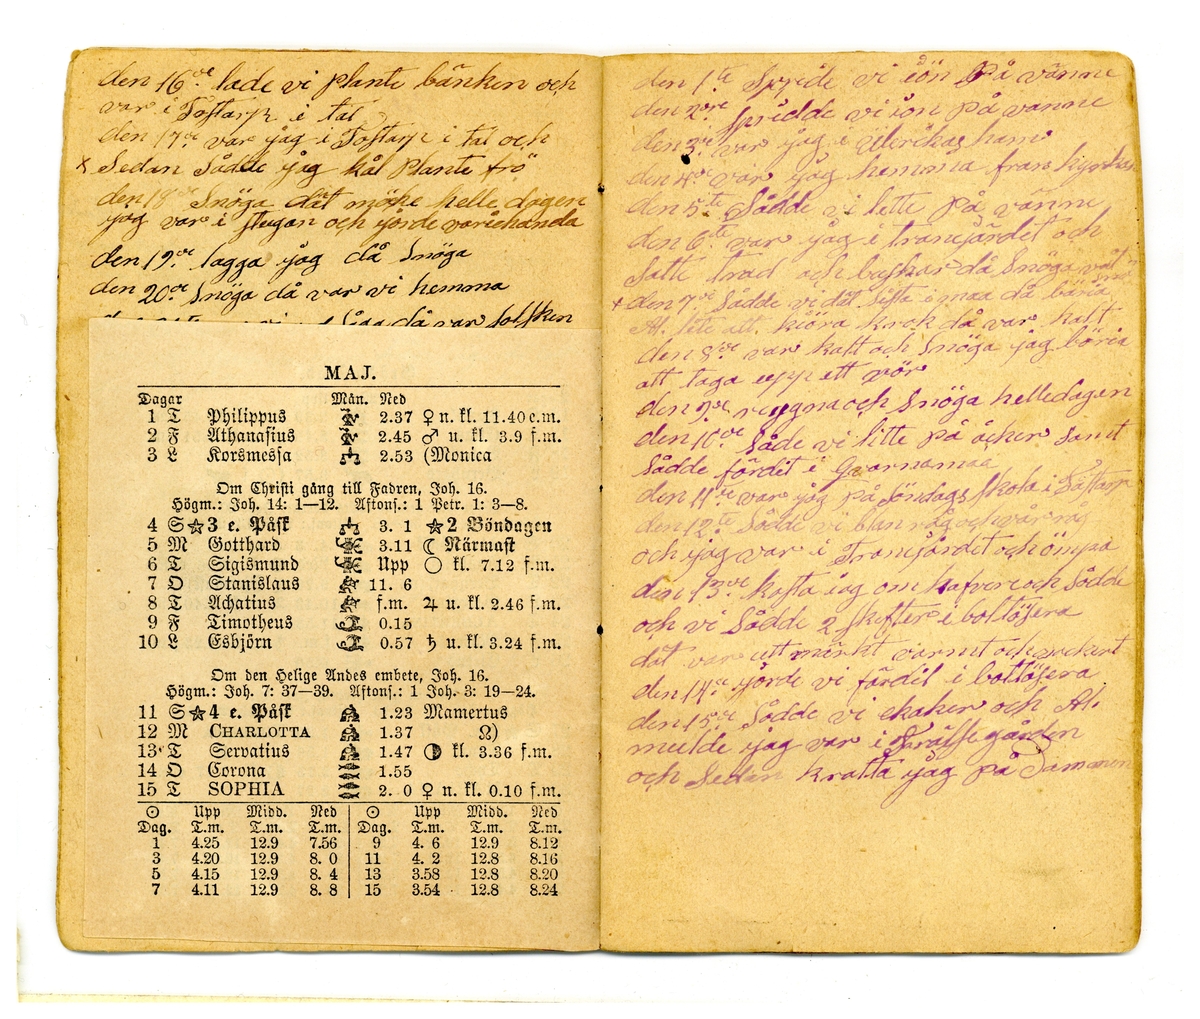 den 16de lade vi plante bänken och
var i Tostarp i tal
den 17de var jag i Tostarp i tal och
x Sedan Sådde jag kål Plante frö
den 18de Snöga dät möke helle dagen
jag var i stugan och jorde variehanda
den 19de lagga jag då Snöga
den 20de Snöga då var vi hemma
då var solsken
MAJ.
Dagar Mån. Ned
1 T Philippus 2.37 ♀ n. kl. 11.40 e.m.
2 F Athanasius 2.45 ♂ u. kl. 3.9 f.m.
3 L Korsmessa 2.53 (Monica
Om Christi gång till Fadren, Joh. 16.
Högm.: Joh. 14: 1—12. Aftons.: 1 Petr. 1: 3—8.
4 S ☆ 3 e. Påsk 3. 1 ☆ 2 Böndagen
5 M Gotthard 3.11 ☾ Närmast
6 T Sigismund Upp ○ kl. 7.12 f.m.
7 O Stanislaus 11. 6
8 T Achatius f.m. ♃ u. kl. 2.46 f.m.
9 F Timotheus 0.15
10 L Esbjörn 0.57 ♄ u. kl. 3.24 f.m.
Om den Helige Andes embete, Joh. 16.
Högm.: Joh. 7: 37—39. Aftons.: 1 Joh. 3: 19—24.
11 S ☆ 4 e. Påsk 1.23 Mamertus
12 M CHARLOTTA 1.37 ☊)
13 T Servatius 1.47 ◑ kl. 3.36 f.m.
14 O Corona 1.55
15 T SOPHIA 2. 0 ♀ n. kl. 0.10 f.m.
☉ Upp Midd. Ned ☉ Upp Midd. Ned
Dag. T.m. T.m. T.m. Dag. T.m. T.m. T.m.
1 4.25 12.9 7.56 9 4. 6 12.9 8.12
3 4.20 12.9 8. 0 11 4. 2 12.8 8.16
5 4.15 12.9 8. 4 13 3.58 12.8 8.20
7 4.11 12.9 8. 8 15 3.54 12.8 8.24
den 1ste vi iön På vänne
den 2dre spridde vi iön på vänne
den 3de var jag i Ulerikas ham
den 4de var jag hemma från kyrkan
den 5te Sådde vi litte på vänne
den 6te var jag i tranjärdet och
Satte trad och buskar då Snöga
x den 7de Sådde vi dät sista i maa då böria
Al. lite att kiöra krok då var kalt
den 8de var kalt och Snöga jag böria
att taga upp ett vör
den 9de rägna och Snöga helle dagen
den 10de Såde vi litte på åcker samt
Sådde färdit i Qvarnamaa
den 11de var jag på Söndags skola i
den 12te Sådde vi blan råg och vår råg
och jag var i Tranjärdet och ömpa
den 13de kasta jag om hafvere och Sådde
och vi Sådde 2 skifter i boltöjera
dät var utt märkt varmt och vackert
den 14de jorde vi färdit i boltöjera
den 15de Sådde vi ekaker och Al.
mulde jag var i Frälse gården
och Sedan kratta jag på